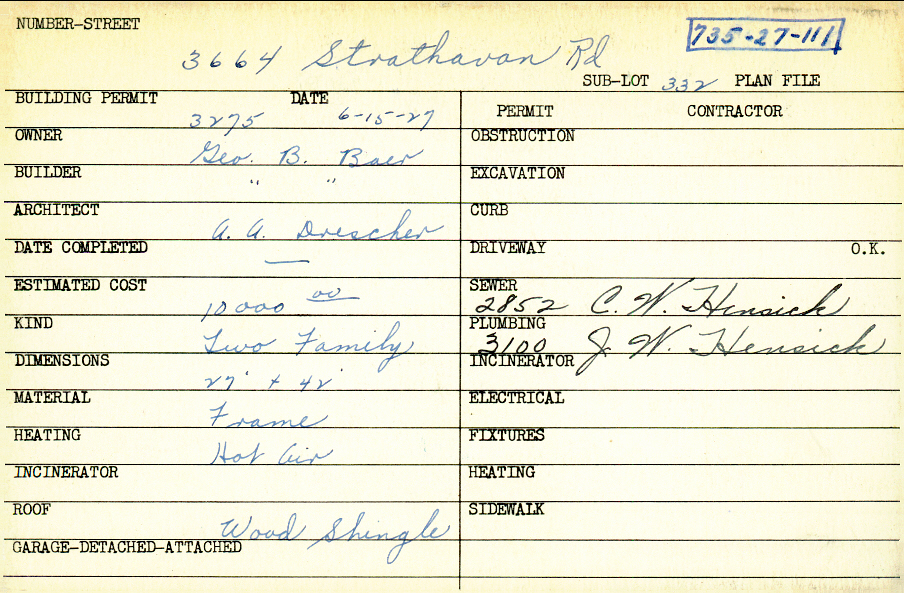 NUMBER-STREET
735-27-111
3664 Strathavon Rd
SUB-LOT 332 PLAN FILE
BUILDING PERMIT DATE
3275 6-15-27
OWNER
Geo. B. Baer
BUILDER
" "
ARCHITECT
A. A. Drescher
DATE COMPLETED
—
ESTIMATED COST
10000 00
KIND
Two Family
DIMENSIONS
27' + 42'
MATERIAL
Frame
HEATING
Hot Air
INCINERATOR
ROOF
Wood Shingle
GARAGE-DETACHED-ATTACHED
PERMIT CONTRACTOR
OBSTRUCTION
EXCAVATION
CURB
DRIVEWAY O.K.
SEWER
2852 C. W. Hensick
PLUMBING
3100 J. W. Hensick
INCINERATOR
ELECTRICAL
FIXTURES
HEATING
SIDEWALK